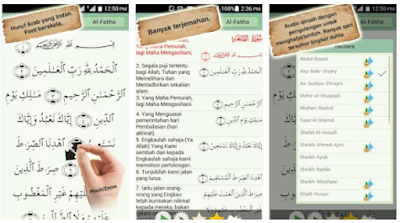 12:50 PM
Huruf Arab yang Indah
Font berskala.
Al-Fatiha
ٱلْحَمْدُ لِلَّهِ رَبِّ ٱلْعَٰلَمِينَ
ٱلرَّحْمَٰنِ ٱلرَّحِيمِ
مَٰلِكِ يَوْمِ
ٱلدِّينِ
إِيَّاكَ نَعْبُدُ وَإِيَّاكَ
ٱهْدِنَا ٱلصِّرَٰطَ
عَلَيْهِمْ غَيْرِ ٱلْمَغْضُوبِ
Pinch/Zoom
2:36 PM
Banyak terjemahan.
Al-Fatiha
Pemurah,
lagi Maha Mengasihani.
2. Segala puji tertentu
bagi Allah, Tuhan yang
Memelihara dan
Mentadbirkan sekalian
alam.
3. Yang Maha Pemurah,
lagi Maha Mengasihani.
4. Yang Menguasai
pemerintahan hari
Pembalasan (hari
akhirat).
5. Engkaulah sahaja
(Ya Allah) yang kami
sembah dan kepada
Engkaulah sahaja kami
memohon pertolongan.
6. Tunjukilah kami jalan
yang lurus.
7. Iaitu jalan orang-
orang yang Engkau
telah kurniakan nikmat
kepada mereka, bukan
12:50 PM
Audio qiroah dengan
pengulangan untuk
menghafal/latihan. Banyak qari
tersohor tingkat dunia
Abdul-Bawol
Abu-Bakr Ghatry
Az-Gudaye-Ghoym
Mahir-al-Muayqali
Mishari-Rashid
Saad Al-Ghamidi
Sheikh Al-Huzaifi
Sheikh Ahmed-Ajmi
Sheikh Ayub
Sheikh-Basfar
Sheikh Minshawi
Khalil-Husari